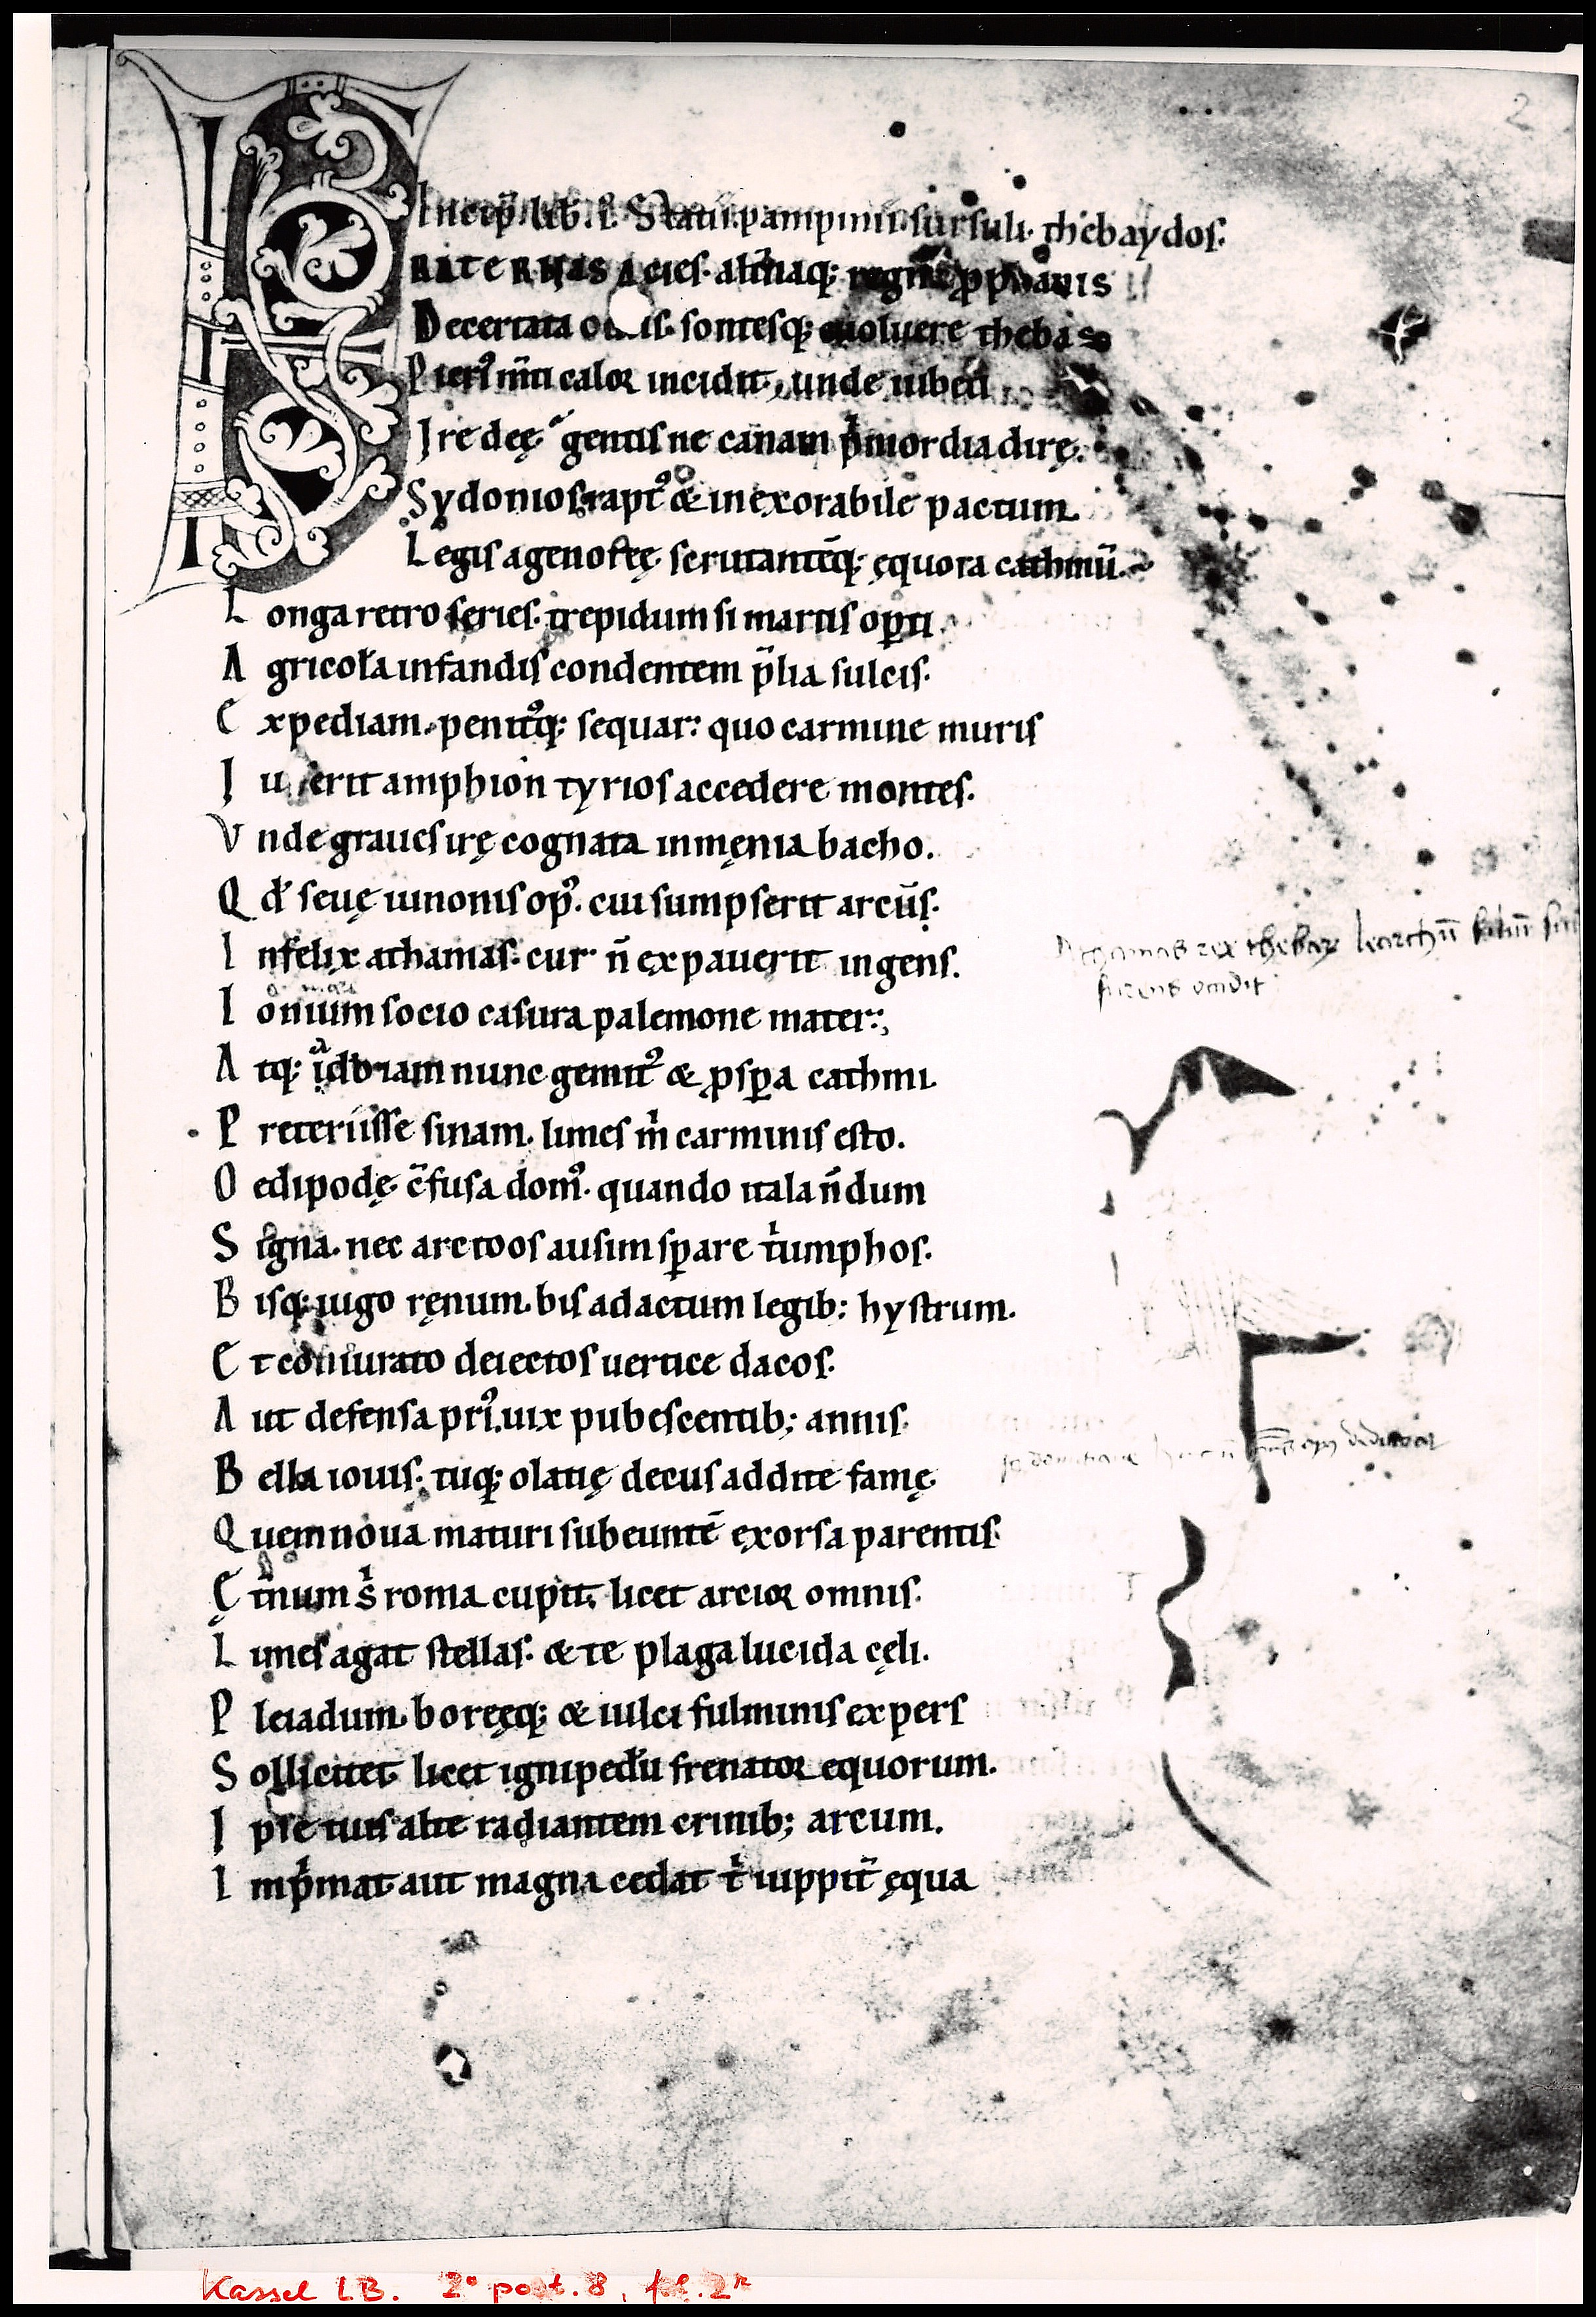 2
Incip̄. lib̄. i. Statii. pampinii. sursuli. thebaydos.
FRATERNAS Acies. alt̄naq; regna ꝓphanis
Decertata odiis. sontesq; euoluere thebas
Pieri᾽ m̄ti calor incidit, unde iubeti
Ire deę. gentis ne canam p̍mordia dirę.
Sydonios. rapt᾽ & inexorabile pactum.
Legis agenoreę. scrutantēq; ęquora cathmū.
Longa retro series. trepidum si martis oꝑti.
Agricola infandis condentem p̄lia sulcis.
Expediam. penit᾽q; sequar: quo carmine muris
Iusserit amphion tyrios accedere montes.
Vnde graues irę cognata in męnia bacho.
Qd̕ seuę iunonis op᾽. cui sumpserit arcūs.
Infelix athamas. cur n̄ expauerit ingens.
Ionium socio casura palemone mater:,
Atq; iam nunc gemit᾽ & ꝓsꝑa cathmi.
Preteriisse sinam. limes m̍ carminis esto.
Oedipodę c̄fusa dom᾽. quando itala n̄dum
Signa. nec arctoos ausim sꝑare t̍umphos.
Bisq; iugo ręnum. bis adactum legib: hystrum.
Et coniurato deiectos uertice dacos.
Aut defensa pri᾽. uix pubescentib; annis.
Bella iouis. tuq; o latię decus addite famę.
Quem noua maturi subeuntē exorsa parentis.
Ęt̄num s̍ roma cupit, licet arcior omnis.
Limes agat stellas. & te plaga lucida cęli.
Pleiadum. boreęq; & iulci fulminis expers
Sollicitet. licet ignipedū frenator equorum.
Ipse tuis alte radiantem crinib; arcum.
Imp̍mat aut magna cedat t̍ iuppit̄ ęqua
Athamas rex thebar learchū filiū suū
furens occidit
Kassel LB. 2° poet. 8, fol. 2r